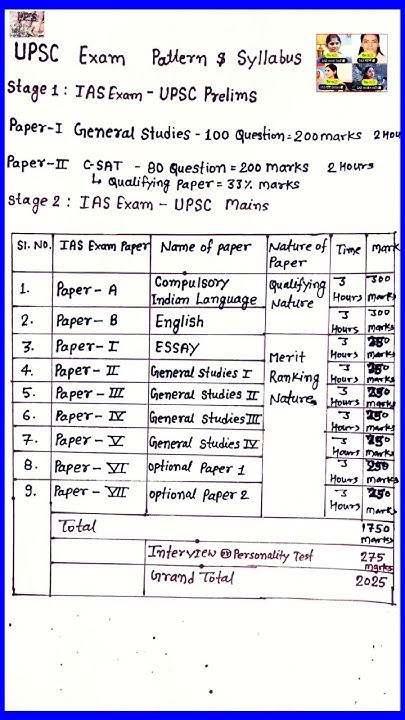 UPSC Exam Pattern & Syllabus
Stage 1 : IAS Exam - UPSC Prelims
Paper-I General Studies - 100 Question = 200 marks 2 Hou
Paper-II C-SAT - 80 Question = 200 marks 2 Hours
↳ Qualifying Paper = 33% marks
Stage 2 : IAS Exam - UPSC Mains
Sl. No. IAS Exam Paper Name of paper Nature of Paper Time Mark
1. Paper - A Compulsory Indian Language Qualifying Nature 3 Hours 300 marks
2. Paper - B English 3 Hours 300 marks
3. Paper - I ESSAY Merit Ranking Nature 3 Hours 250 marks
4. Paper - II General Studies I 3 Hours 250 marks
5. Paper - III General Studies II 3 Hours 250 marks
6. Paper - IV General Studies III 3 Hours 250 marks
7. Paper - V General Studies IV 3 Hours 250 marks
8. Paper - VI optional Paper 1 3 Hours 250 marks
9. Paper - VII optional Paper 2 3 Hours 250 marks
Total 1750 marks
Interview or Personality Test 275 marks
Grand Total 2025